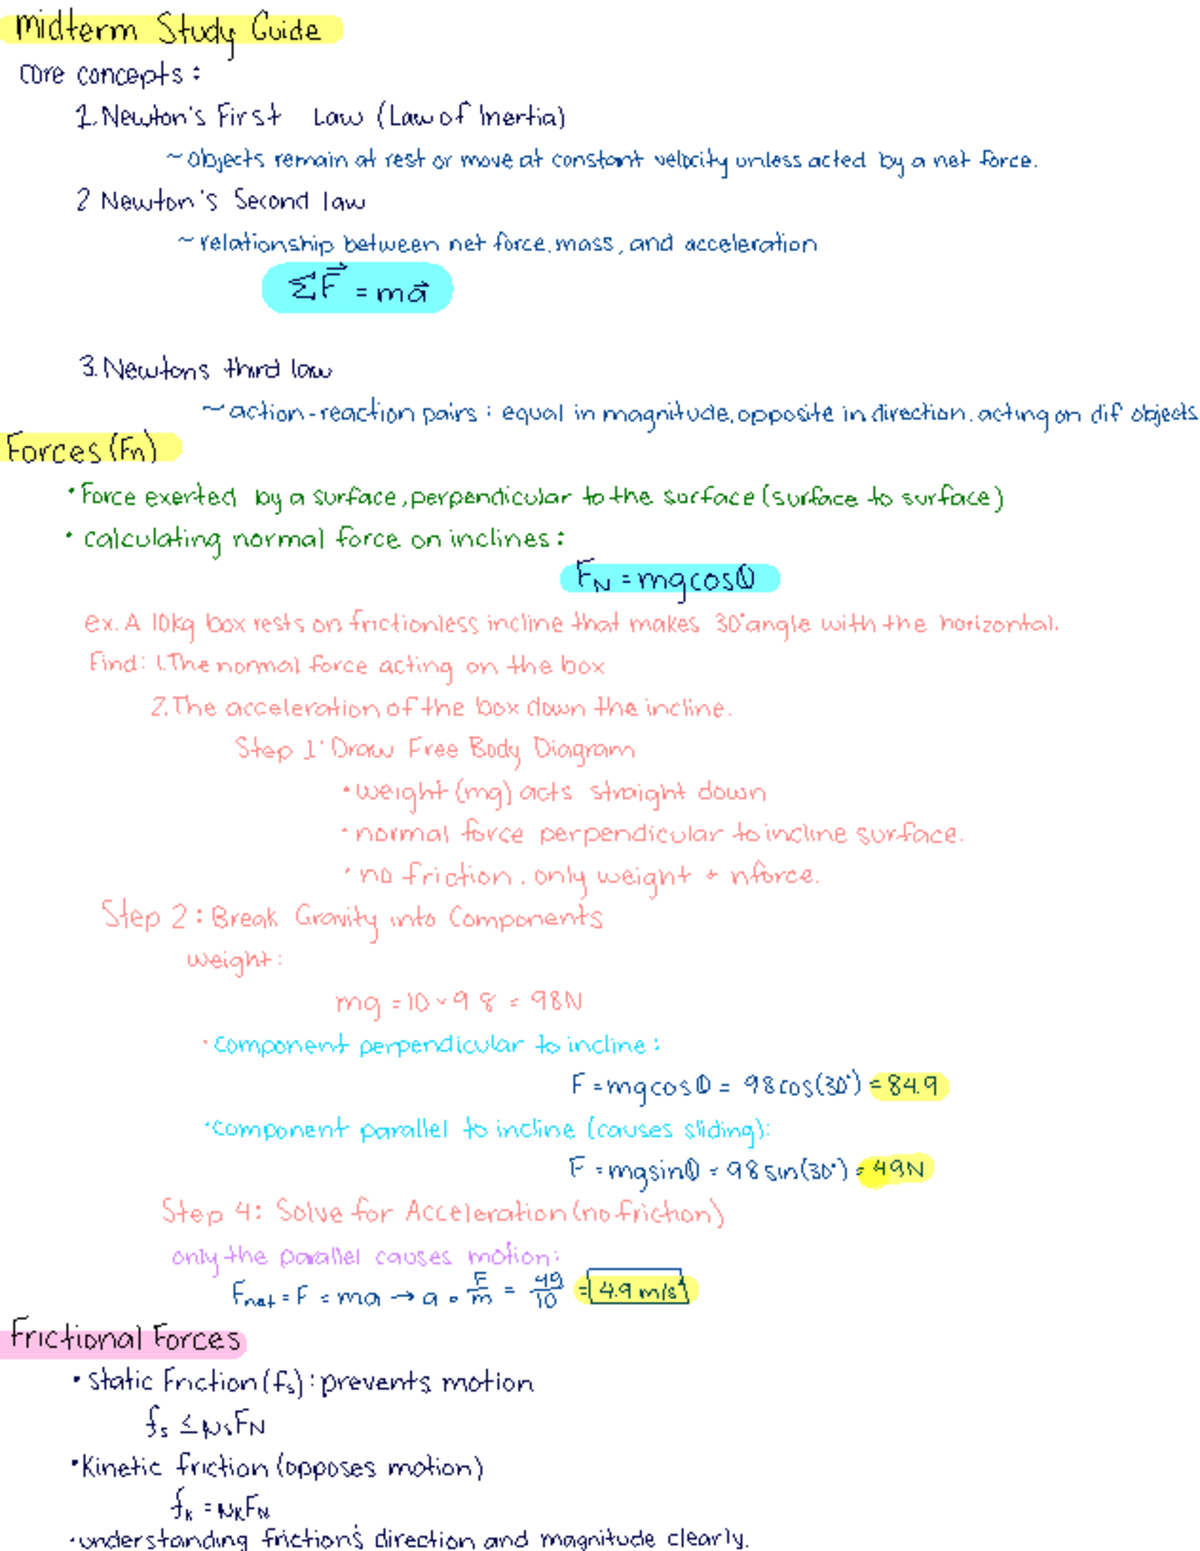 midterm Study Guide
core concepts:
1. Newton's First Law (Law of Inertia)
~ objects remain at rest or move at constant velocity unless acted by a net force.
2 Newton's Second law
~ relationship between net force, mass, and acceleration
ΣF⃗ = ma⃗
3. Newtons third law
~ action-reaction pairs: equal in magnitude, opposite in direction, acting on dif objects
Forces (Fn)
• Force exerted by a surface, perpendicular to the surface (surface to surface)
• calculating normal force on inclines:
F_N = mgcosθ
ex. A 10kg box rests on frictionless incline that makes 30° angle with the horizontal.
Find: 1. The normal force acting on the box
2. The acceleration of the box down the incline.
Step 1: Draw Free Body Diagram
• weight (mg) acts straight down
• normal force perpendicular to incline surface.
• no friction, only weight + nforce.
Step 2: Break Gravity into Components
weight:
mg = 10 × 9.8 = 98N
• component perpendicular to incline:
F = mgcosθ = 98cos(30°) = 84.9
• component parallel to incline (causes sliding):
F = mgsinθ = 98sin(30°) = 49N
Step 4: Solve for Acceleration (no friction)
only the parallel causes motion:
Fnet = F = ma → a = F/m = 49/10 = 4.9 m/s²
Frictional Forces
• Static Friction (fs): prevents motion
fs ≤ μsFN
• Kinetic friction (opposes motion)
fk = μkFN
• understanding friction's direction and magnitude clearly.